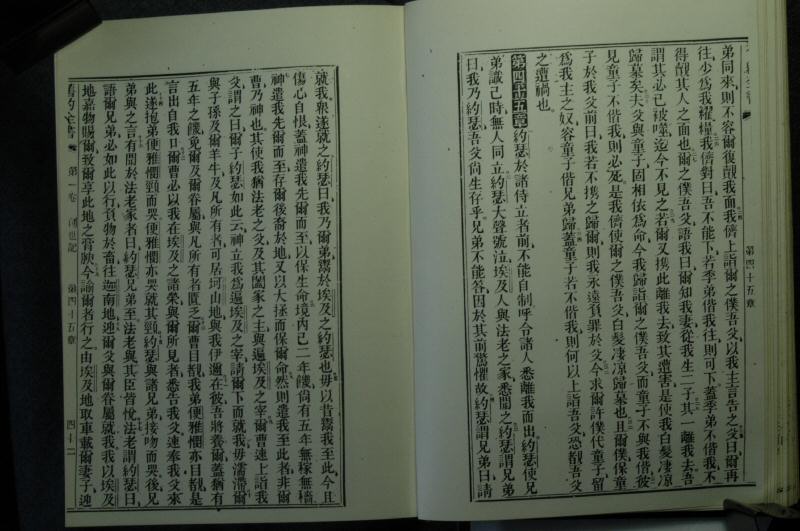 弟同來、則不容爾復覿我面、我儕上詣爾之僕吾父、以我主言告之、父曰、爾再
往、少爲我糴糧、我儕對曰、吾不能下、若季弟偕我往、則可下、蓋季弟不偕我、不
得覿其人之面也、爾之僕吾父語我曰、爾知我妻從我生二子、其一離我去、吾
謂其必已被噬、迄今不見之、若爾又攜此離我去、致其遭害、是使我白髮凄凉
歸墓矣、夫父與童子固相依爲命、今我歸詣爾之僕吾父、而童子不與我偕、彼
見童子不偕我、則必死、是我儕使爾之僕吾父白髮凄凉歸墓也、且爾僕保童
子於我父前曰、我若不攜之歸爾、則我永遠負罪於父、今求爾許僕代童子、留
爲我主之奴、容童子偕兄弟歸、蓋童子若不偕我、則何以上詣吾父、恐覩吾父
之遭禍也、
第四十五章 約瑟於諸侍立者前、不能自制、呼合諸人悉離我而出、約瑟使兄
弟識己時、無人同立、約瑟大聲號泣、埃及人與法老之家悉聞之、約瑟謂兄弟
曰、我乃約瑟、吾父尙生存乎、兄弟不能答、因於其前驚懼故、約瑟謂兄弟曰、請
第四十五章
就我、衆遂就之、約瑟曰、我乃爾弟鬻於埃及之約瑟也、毋以昔鬻我至此、今且
傷心自恨、蓋神遣我先爾而至、以保生命、境內已二年饑、尙有五年無稼無穡、
神遣我先爾而至、存爾後裔於地、又以大拯而保爾命、然則遣我至此者、非爾
曹、乃神也、其使我猶法老之父、及其闔家之主、與遍埃及之宰、爾曹速上詣我
父、謂之曰、爾子約瑟如此云、神立我爲遍埃及之宰、請爾下而就我、毋濡滯、爾
與子孫及爾羊牛、及凡所有者、可居坷山地、與我伊邇、在彼吾將養爾、蓋猶有
五年之饑、免爾及爾眷屬、與凡所有者匱乏、爾曹目覩、我弟便雅憫亦目覩、是
言出自我口、爾曹必以我在埃及之諸榮、與爾所見者、悉告我父、速奉我父來
此、遂抱弟便雅憫頸而哭、便雅憫亦哭、就其頸、約瑟與諸兄弟接吻而哭、後兄
弟與之言、有聞於法老家者曰、約瑟兄弟至、法老與其臣皆悅、法老謂約瑟曰、
語爾兄弟、必如此以行、負物於畜、往迦南地、迎爾父與爾眷屬就我、我以埃及
地嘉物賜爾、致爾享此地之膏腴、今諭爾者行之、由埃及地取車、載爾妻子、迎
舊約全書 第一卷 創世記 第四十五章 四十二